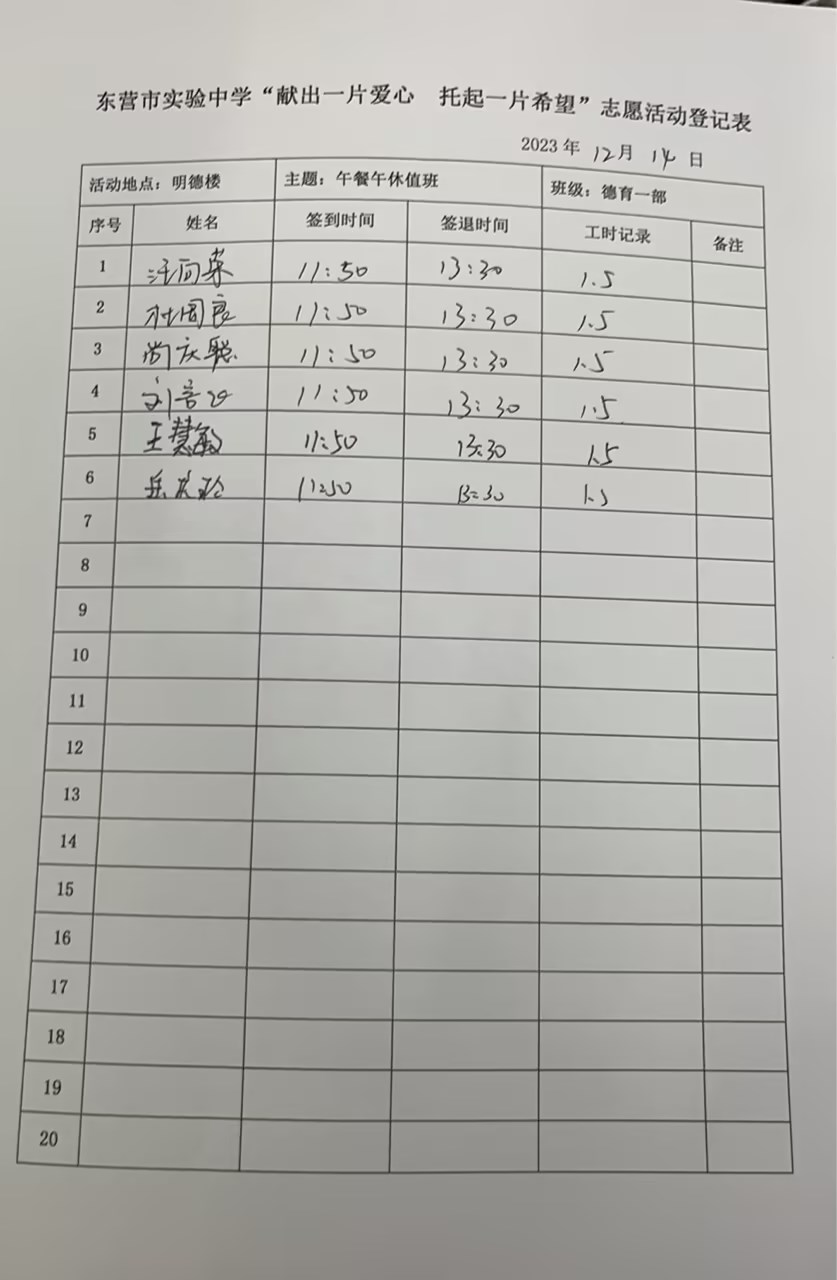 东营市实验中学“献出一片爱心 托起一片希望”志愿活动登记表
2023 年 12 月 14 日
活动地点：明德楼 主题：午餐午休值班 班级：德育一部
序号 姓名 签到时间 签退时间 工时记录 备注
1 汪向荣 11:50 13:30 1.5
2 周良 11:50 13:30 1.5
3 尚庆聪 11:50 13:30 1.5
4 刘 11:50 13:30 1.5
5 王慧敏 11:50 13:30 1.5
6 11:50 13:30 1.5
7
8
9
10
11
12
13
14
15
16
17
18
19
20